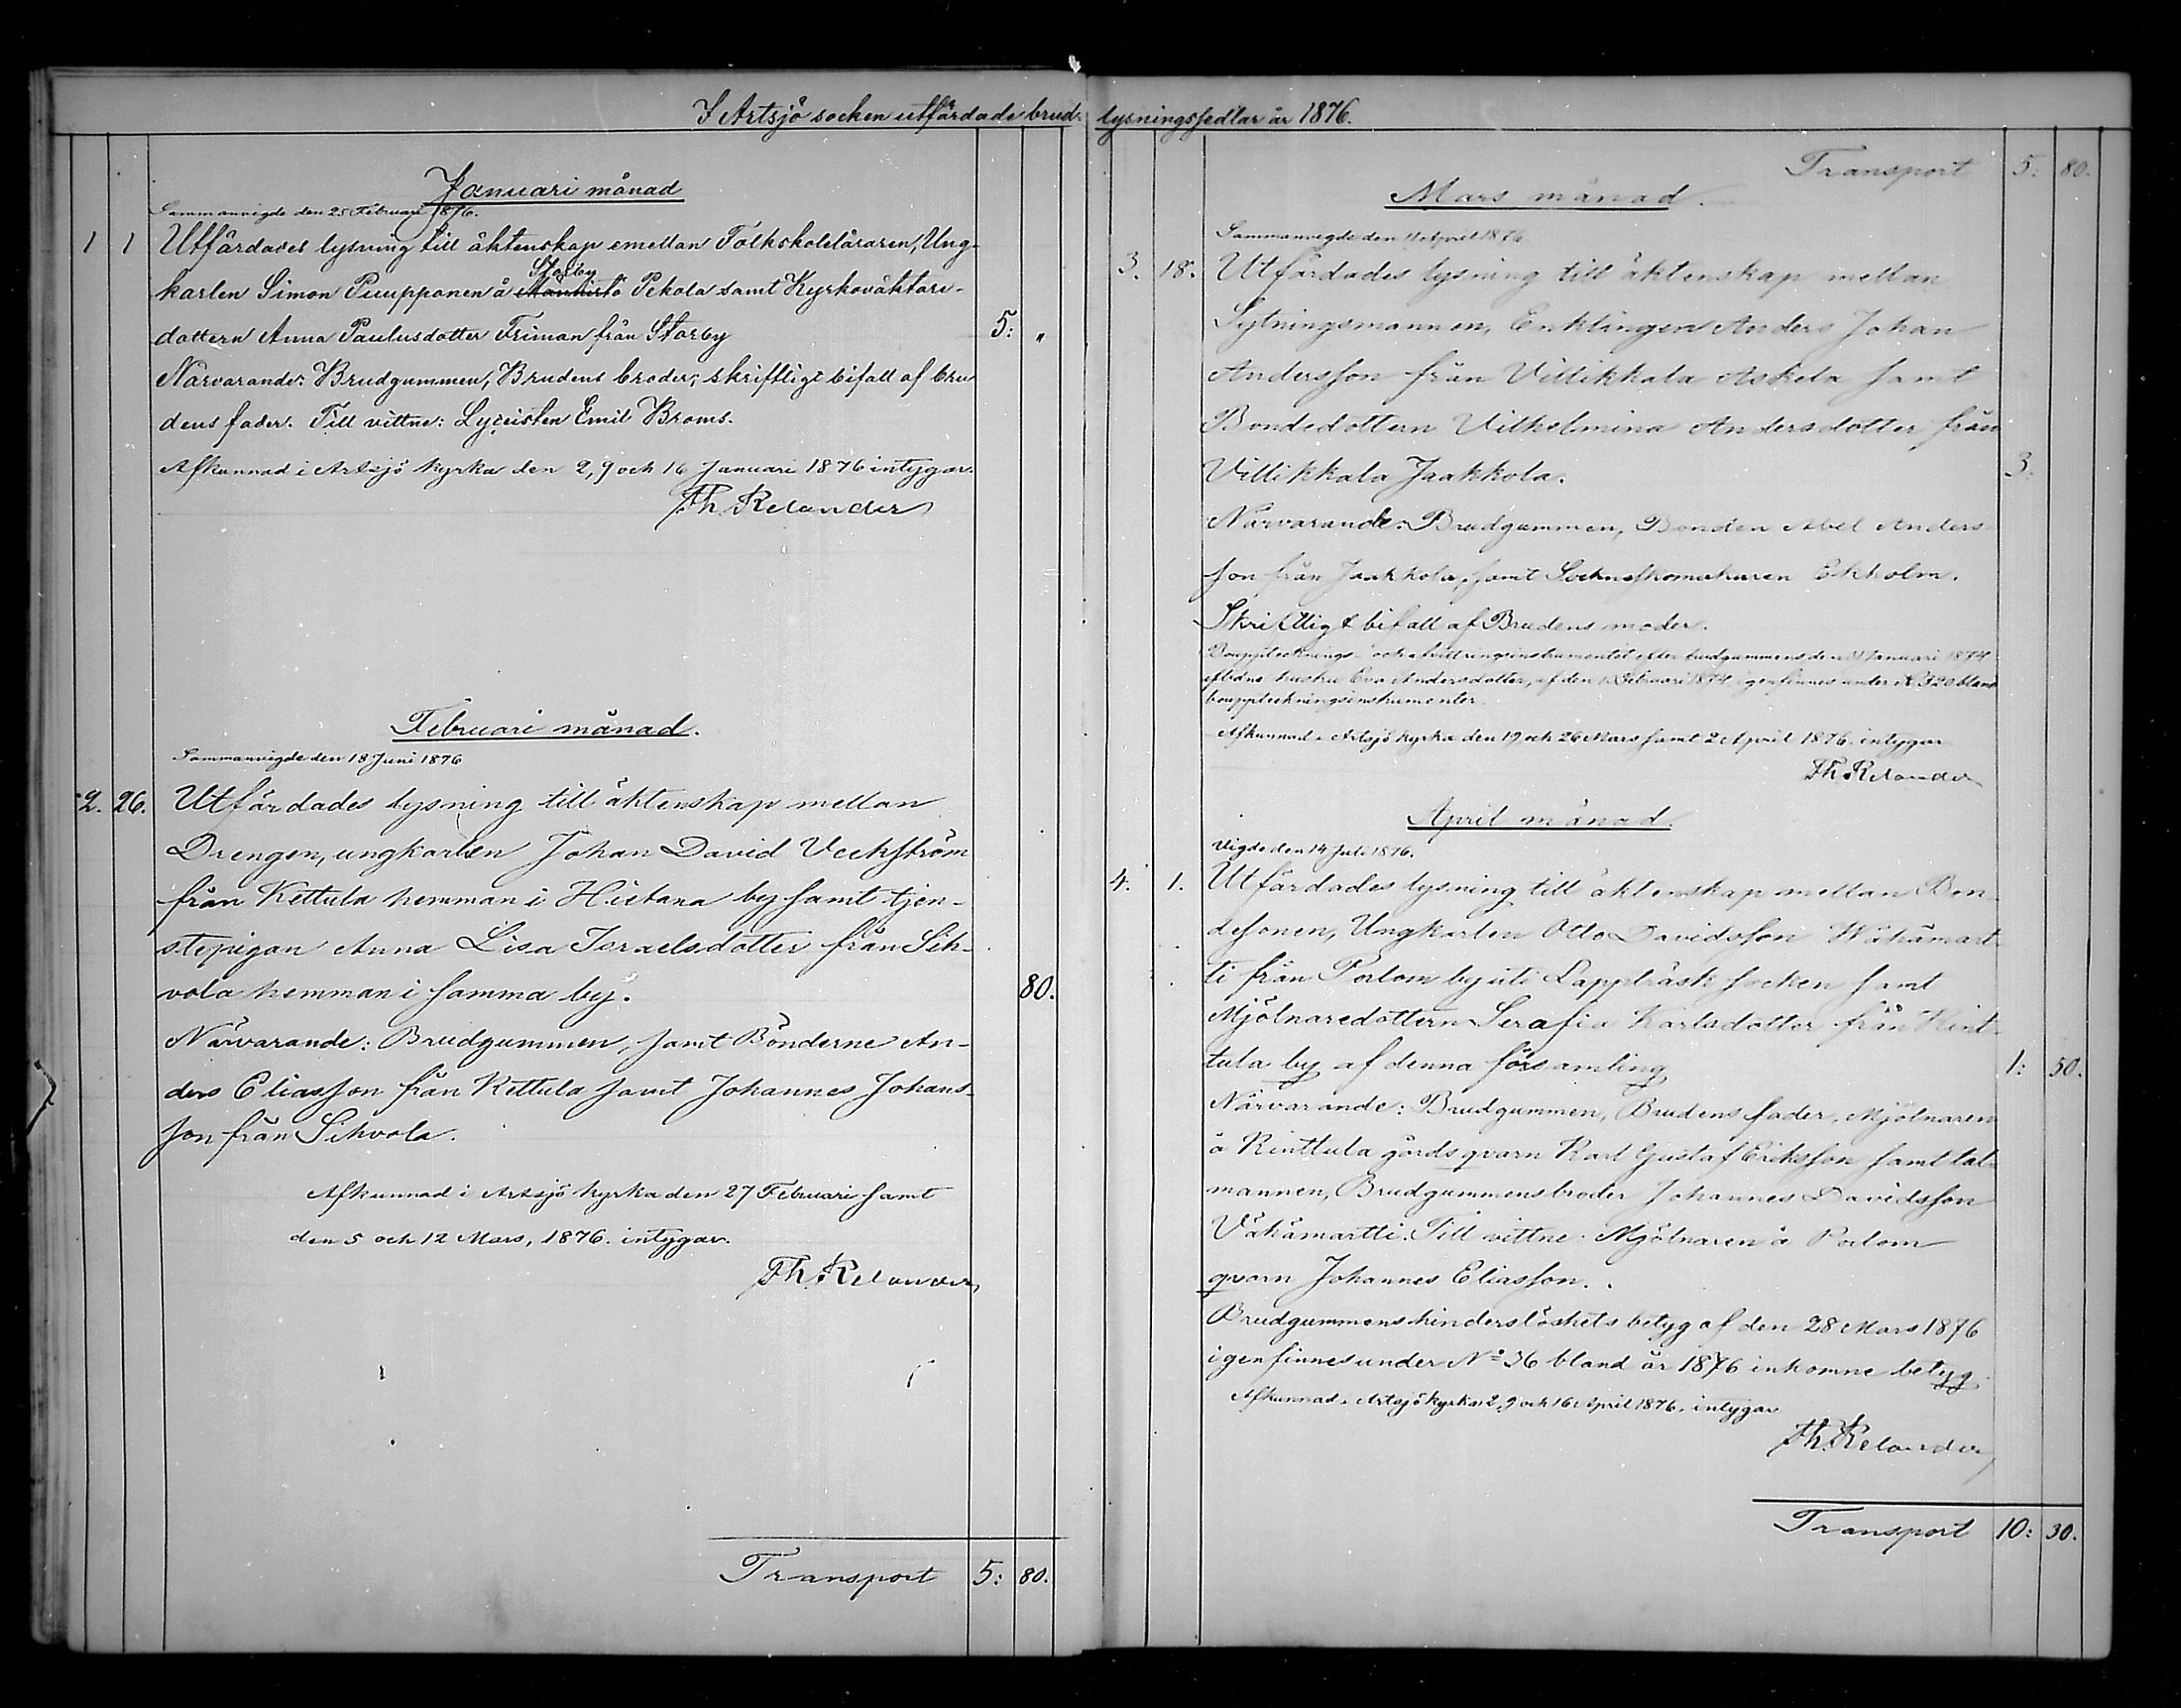 I Artsjö socken utfärdade brud-
Januari månad
Sammanvigde den 25 Februari 1876.
1 1 Utfärdades lysning till äktenskap emellan Folkskoleläraren, Ung-
Storby
karlen Simon Puupponen å Pekola samt Kyrkoväktare-
dottern Anna Paulusdotter Friman från Storby 5: "
Närvarande: Brudgummen, Brudens broder, skriftligt bifall af bru
dens fader. Till vittne: Lyceisten Emil Broms.
Afkunnad i Artsjö kyrka den 2, 9 och 16 Januari 1876 intygar.
Th. Relander
Februari månad.
Sammanvigde den 18 Juni 1876
2. 26. Utfärdades lysning till äktenskap mellan
Drengen, ungkarlen Johan David Veckström
från Kettula hemman i Hietana by samt tjen-
stepigan Anna Lisa Israelsdotter från Sih-
vola hemman i samma by. 80.
Närvarande: Brudgummen, samt Bönderne An-
ders Eliasson från Kettula samt Johannes Johans-
son från Sihvola.
Afkunnad i Artsjö kyrka den 27 Februari samt
den 5 och 12 Mars, 1876. intygar.
Th. Relander
Transport 5: 80.
lysningssedlar år 1876.
Transport 5: 80.
Mars månad.
Sammanvigde den 11 April 1876.
3. 18. Utfärdades lysning till äktenskap mellan
Sytningsmannen, Enklingen Anders Johan
Andersson från Villikkala Askela samt
Bondedottern Vilhelmina Andersdotter från
Villikkala Jaakkola. 3.
Närvarande: Brudgummen, Bonden Abel Anders
son från Jaakkola, samt Socknskomakaren Ekholm.
Skriftligt bifall af Brudens moder.
Bouppteknings- och afvittringsinstrumentet efter brudgummens den 31 Januari 1874
aflidne hustru Eva Andersdotter, af den Februari 1874 igenfinnes under № 320 bland
bouppteckningsinstrumenter.
Afkunnad i Artsjö kyrka den 19 och 26 Mars samt 2 April 1876. intygar
Th. Relander
April månad.
Vigde den 14 Juli 1876.
4. 1. Utfärdades lysning till äktenskap mellan Bon-
desonen, Ungkarlen Otto Davidsson Wähämart-
ti från Porlom by uti Lappträsk socken samt
Mjölnaredottern Serafia Karlsdotter från Kint-
tula by af denna församling 1: 50.
Närvarande: Brudgummen, Brudens fader, Mjölnaren
å Kinttula gårds qvarn Karl Gustaf Eriksson samt tal-
mannen, Brudgummens broder Johannes Davidsson
Vähämartti. Till vittne: Mjölnaren å Porlom
qvarn Johannes Eliasson.
Brudgummens hinderslöshets betyg af den 28 Mars 1876
igenfinnes under № 36 bland år 1876 inkomne betyg.
Afkunnad i Artsjö kyrka 2, 9 och 16 April 1876. intygar
Th. Relander
Transport 10: 30.